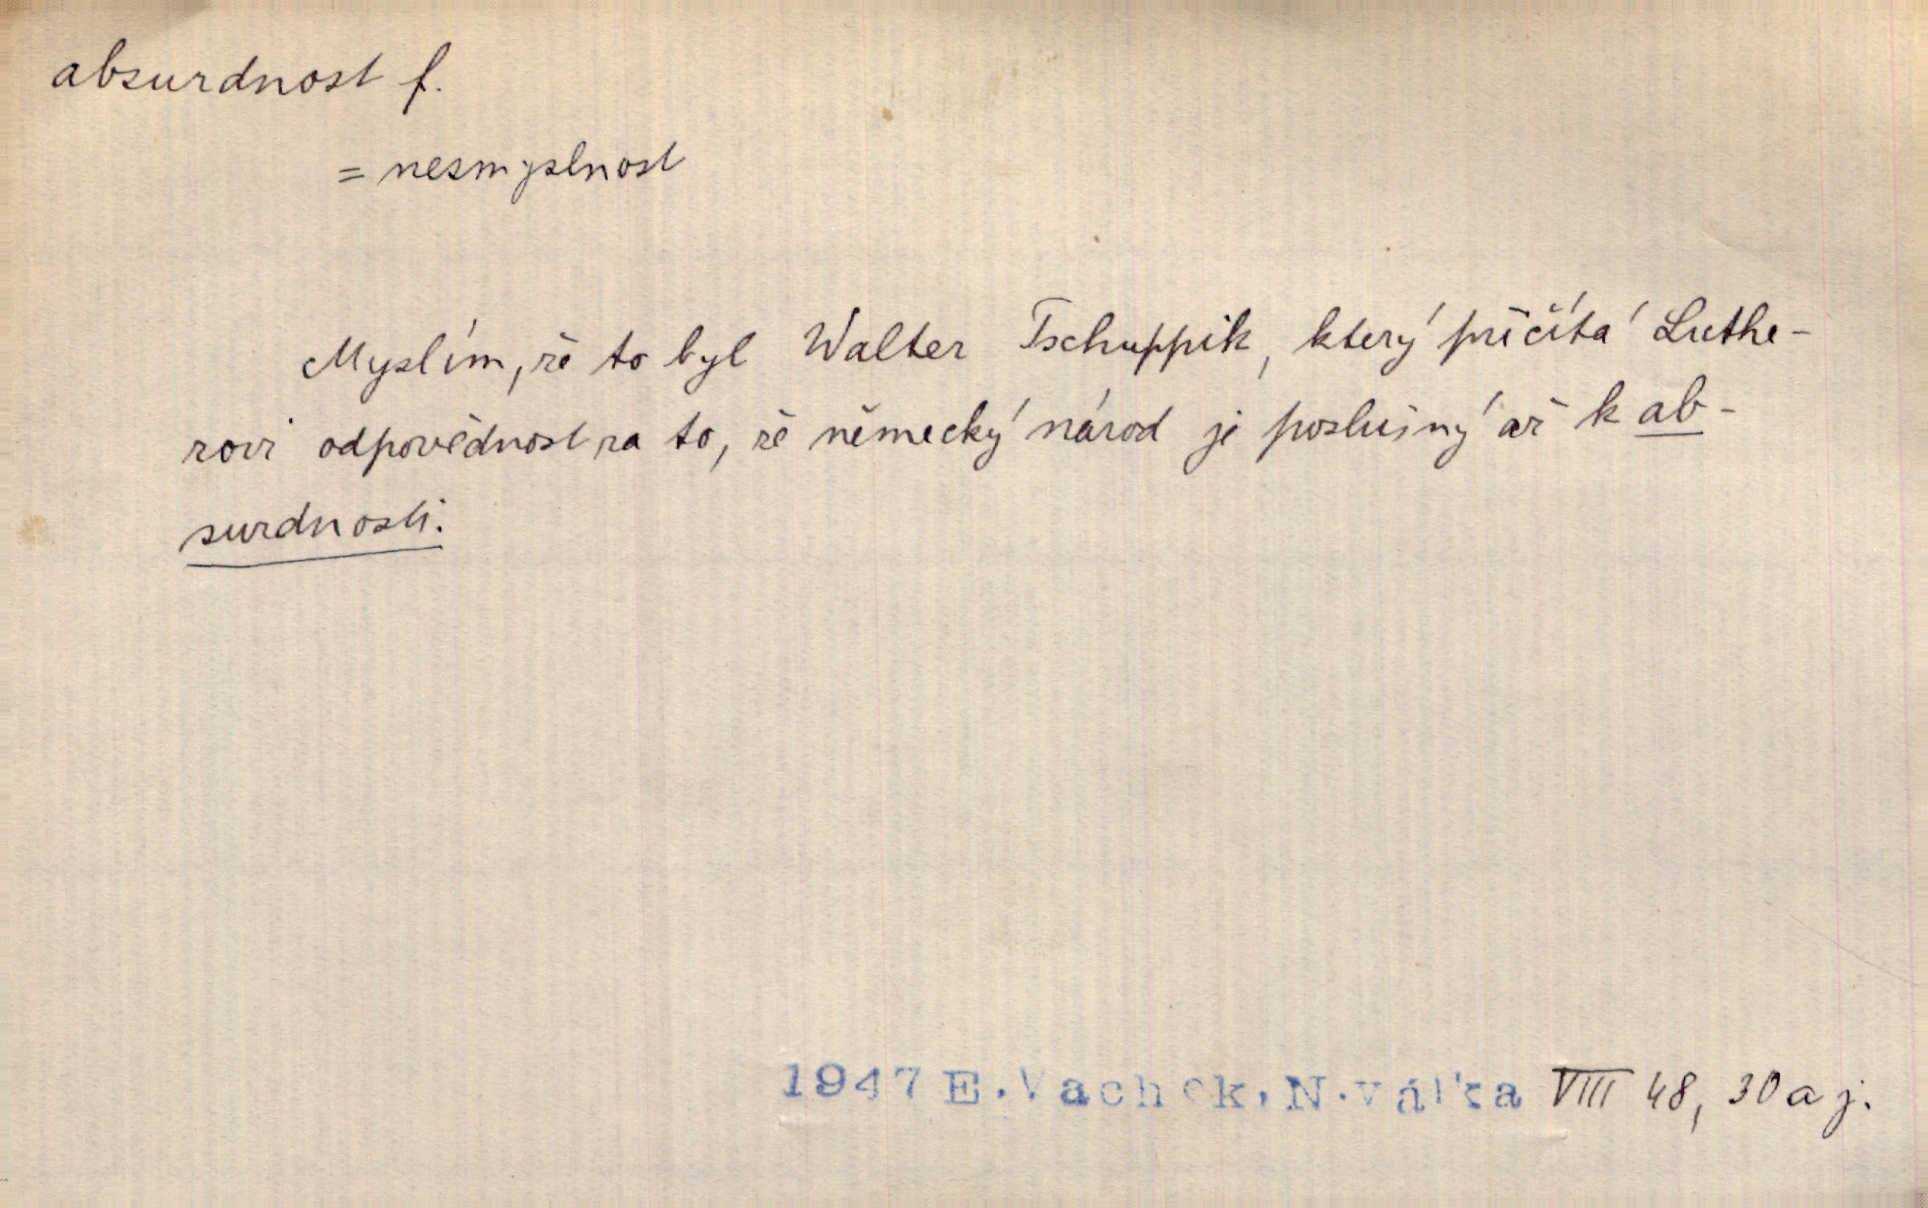 absurdnost f.
= nesmyslnost
Myslím, že to byl Walter Tschuppik, který přičítá Luthe-
rovi odpovědnost za to, že německý národ je poslušný až k ab-
surdnosti.
1947 E. Vachek, N. válka VIII 48, 30 a j.